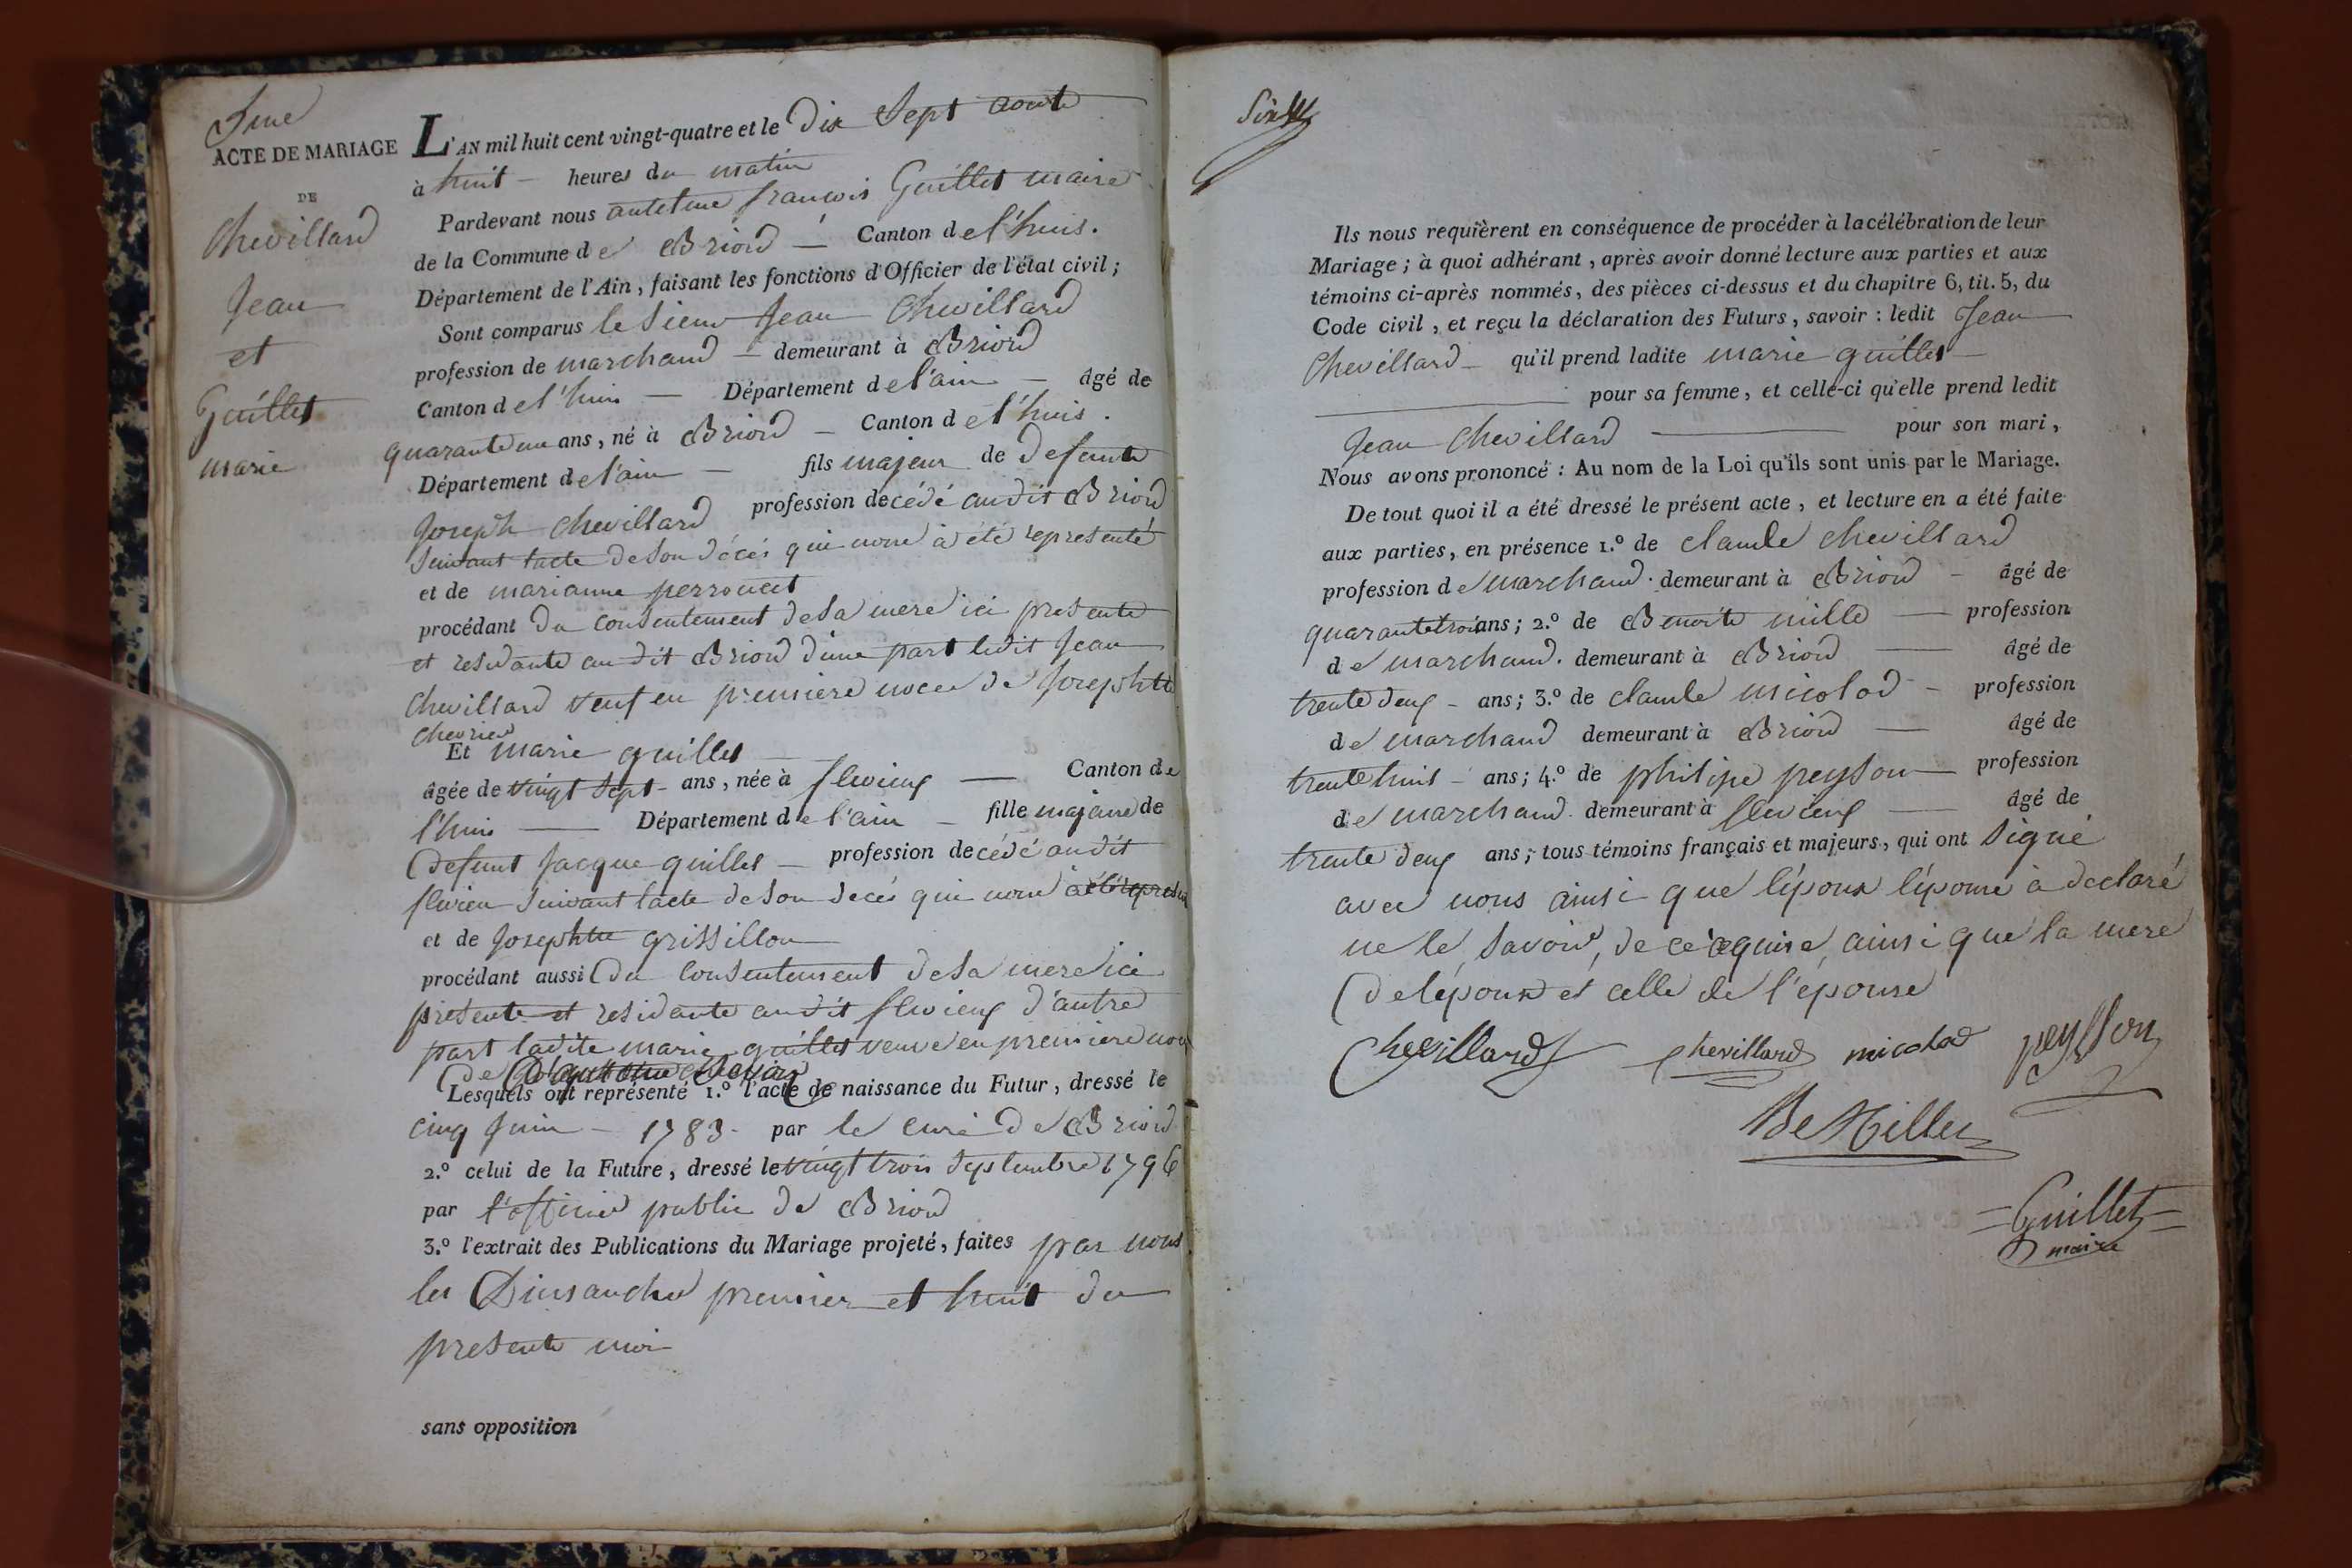 5me
ACTE DE MARIAGE
DE
Chevillard
Jean
et
Guillet
marie
L'AN mil huit cent vingt-quatre et le dix Sept aoute
à huit heures du matin
Pardevant nous antelme françois Guillet maire
de la Commune de Briord — Canton de l'huis.
Département de l'Ain, faisant les fonctions d'Officier de l'état civil;
Sont comparus le Sieur Jean Chevillard
profession de marchand — demeurant à Briord
Canton de l'huis — Département de l'ain — âgé de
quarante un ans, né à Briord — Canton de l'huis.
Département de l'ain — fils majeur de defunt
Joseph Chevillard profession decédé au dit Briord
Suivant l'acte de Son décés qui nous à été representé
et de marianne perrouait
procédant du Consentement de Sa mere ici presente
et residante au dit Briord d'une part ledit Jean
Chevillard veuf en premiere noces de Josephtte
chevrier
Et marie guillet
âgée de vingt Sept ans, née à flevieux — Canton de
l'huis — Département de l'ain — fille majeure de
defunt Jacque guillet — profession decédé au dit
flevieu Suivant l'acte de Son decés qui nous à été
et de Josephtte grissillon
procédant aussi du Consentement de Sa mere ici
presente et residante au dit flevieux d'autre
part ladite marie guillet veuve en premiere
de
Lesquels ont représenté 1.° l'acte de naissance du Futur, dressé le
cinq Juin — 1783 — par le curé de Briord
2.° celui de la Future, dressé le vingt trois Septembre 1796
par l'officier public de Briord
3.° l'extrait des Publications du Mariage projeté, faites par nous
les Dimanche premier et huit du
presente moi
sans opposition
Six
Ils nous requièrent en conséquence de procéder à la célébration de leur
Mariage; à quoi adhérant, après avoir donné lecture aux parties et aux
témoins ci-après nommés, des pièces ci-dessus et du chapitre 6, tit. 5, du
Code civil, et reçu la déclaration des Futurs, savoir : ledit Jean
Chevillard — qu'il prend ladite marie guillet —
pour sa femme, et celle-ci qu'elle prend ledit
Jean Chevillard — pour son mari,
Nous avons prononcé : Au nom de la Loi qu'ils sont unis par le Mariage.
De tout quoi il a été dressé le présent acte, et lecture en a été faite
aux parties, en présence 1.° de claude chevillard
profession de marchand. demeurant à Briord — âgé de
quarante trois ans; 2.° de Benoite mille — profession
de marchand. demeurant à Briord — âgé de
trente deux — ans; 3.° de claude micolod — profession
de marchand demeurant à Briord — âgé de
trente huit — ans; 4.° de philipe peysson — profession
de marchand. demeurant à flevieux — âgé de
trente deux ans; tous témoins français et majeurs, qui ont Signé
avec nous ainsi que l'époux l'épouse à declaré
ne le Savoir, de ce requise, ainsi que la mere
de l'époux et celle de l'épouse
Chevillard chevillard micolod peysson
Be Millee
Guillet
maire